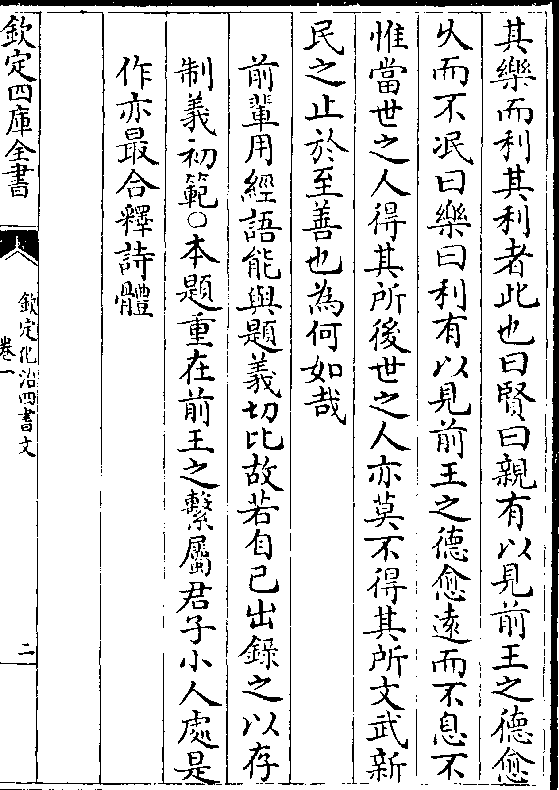 其樂而利其利者此也曰賢曰親有以見前王之德愈
乆而不冺曰樂曰利有以見前王之德愈遠而不息不
惟當世之人得其所後世之人亦莫不得其所文武新
民之止於至善也為何如哉
前輩用經語能與題義切比故若自己出錄之以存
制義初範○本題重在前王之繫屬君子小人處是
作亦最合釋詩體
欽定四庫全書
欽定化治四書文
卷一
二